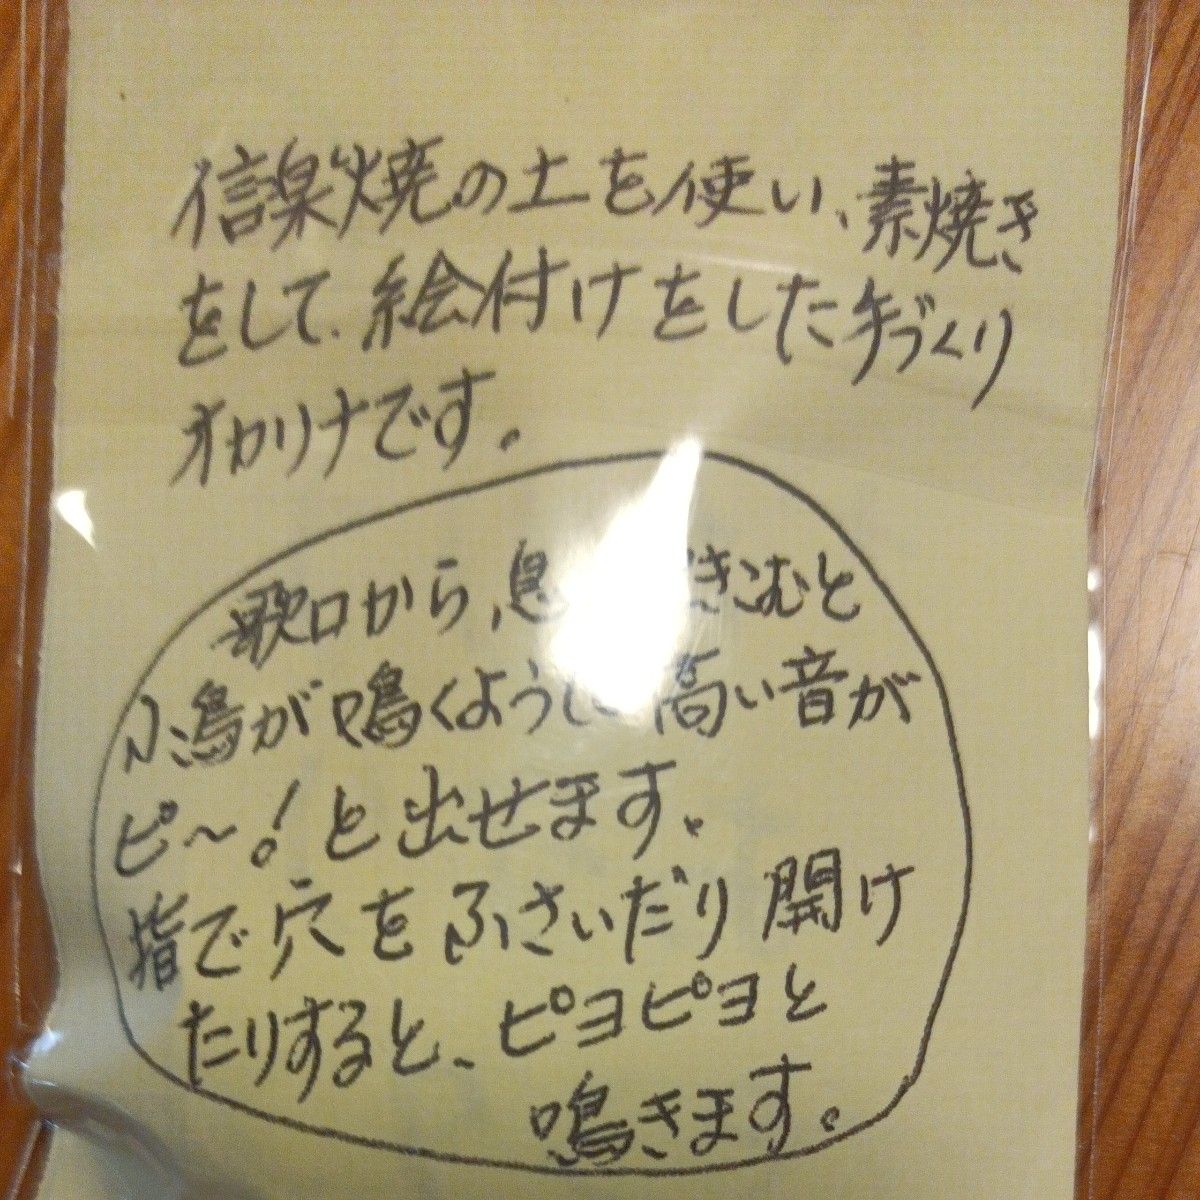 信楽焼の土を使い、素焼き
をして、絵付けをした手づくり
オカリナです。
歌口から、息 きこむと
小鳥が鳴くように高い音が
ピ〜!と出せます。
指で穴をふさいだり開け
たりすると、ピヨピヨと
鳴きます。